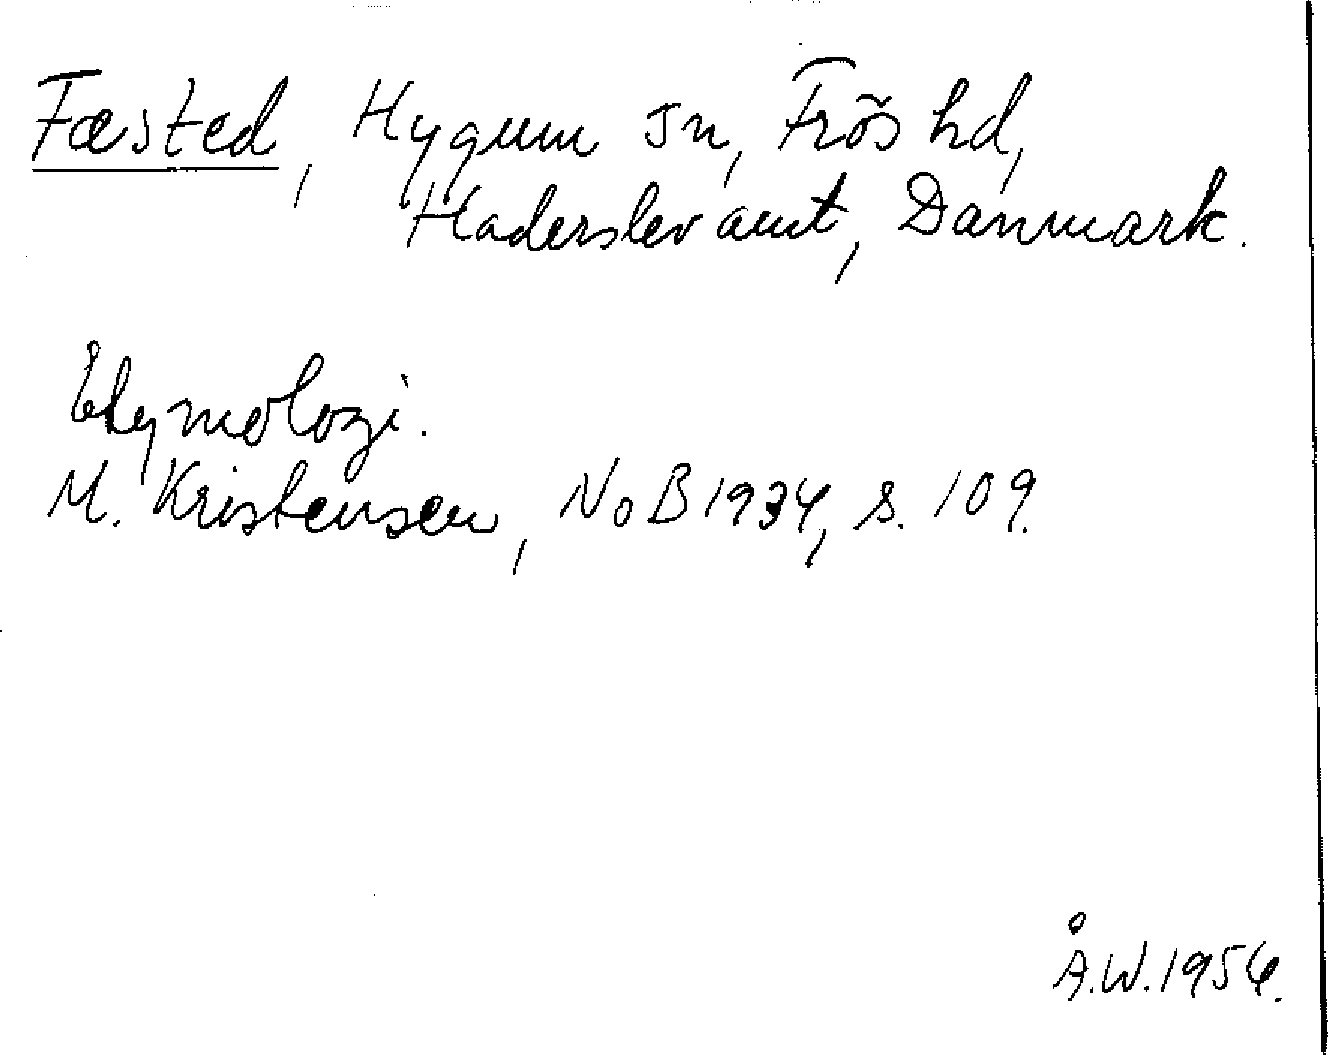 Fæsted, Hygum sn, Frös hd,
Haderslev amt, Danmark.
Etymologi.
M. Kristensen, NoB 1934, s. 109.
Å.W. 1956.